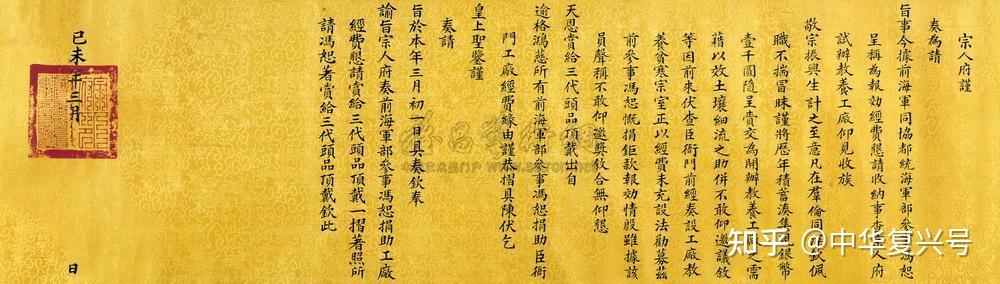 宗人府謹
奏為請
旨事今據前海軍同協都統海軍部參事馮恕
呈稱為報効經費懇請收納事查宗人府
試辦教養工廠仰見收族
敬宗振興生計之至意凡在羣倫同深欽佩
職不揣冒昧謹將歷年積蓄湊集銀幣
壹千圓隨呈賫交為開辦教養工廠之需
藉以效土壤細流之助併不敢仰邀議敘
等因前來伏查臣衙門前經奏設工廠教
養貧寒宗室正以經費未充設法勸募茲
前參事馮恕慨捐鉅款報効情殷雖據該
員聲稱不敢仰邀獎敘合無仰懇
天恩賞給三代頭品頂戴出自
逾格鴻慈所有前海軍部參事馮恕捐助臣衙
門工廠經費緣由謹恭摺具陳伏乞
皇上聖鑒謹
奏請
旨於本年三月初一日具奏欽奉
諭旨宗人府奏前海軍部參事馮恕捐助工廠
經費懇請賞給三代頭品頂戴一摺著照所
請馮恕著賞給三代頭品頂戴欽此
己未年三月
日
知乎 @中华复兴号